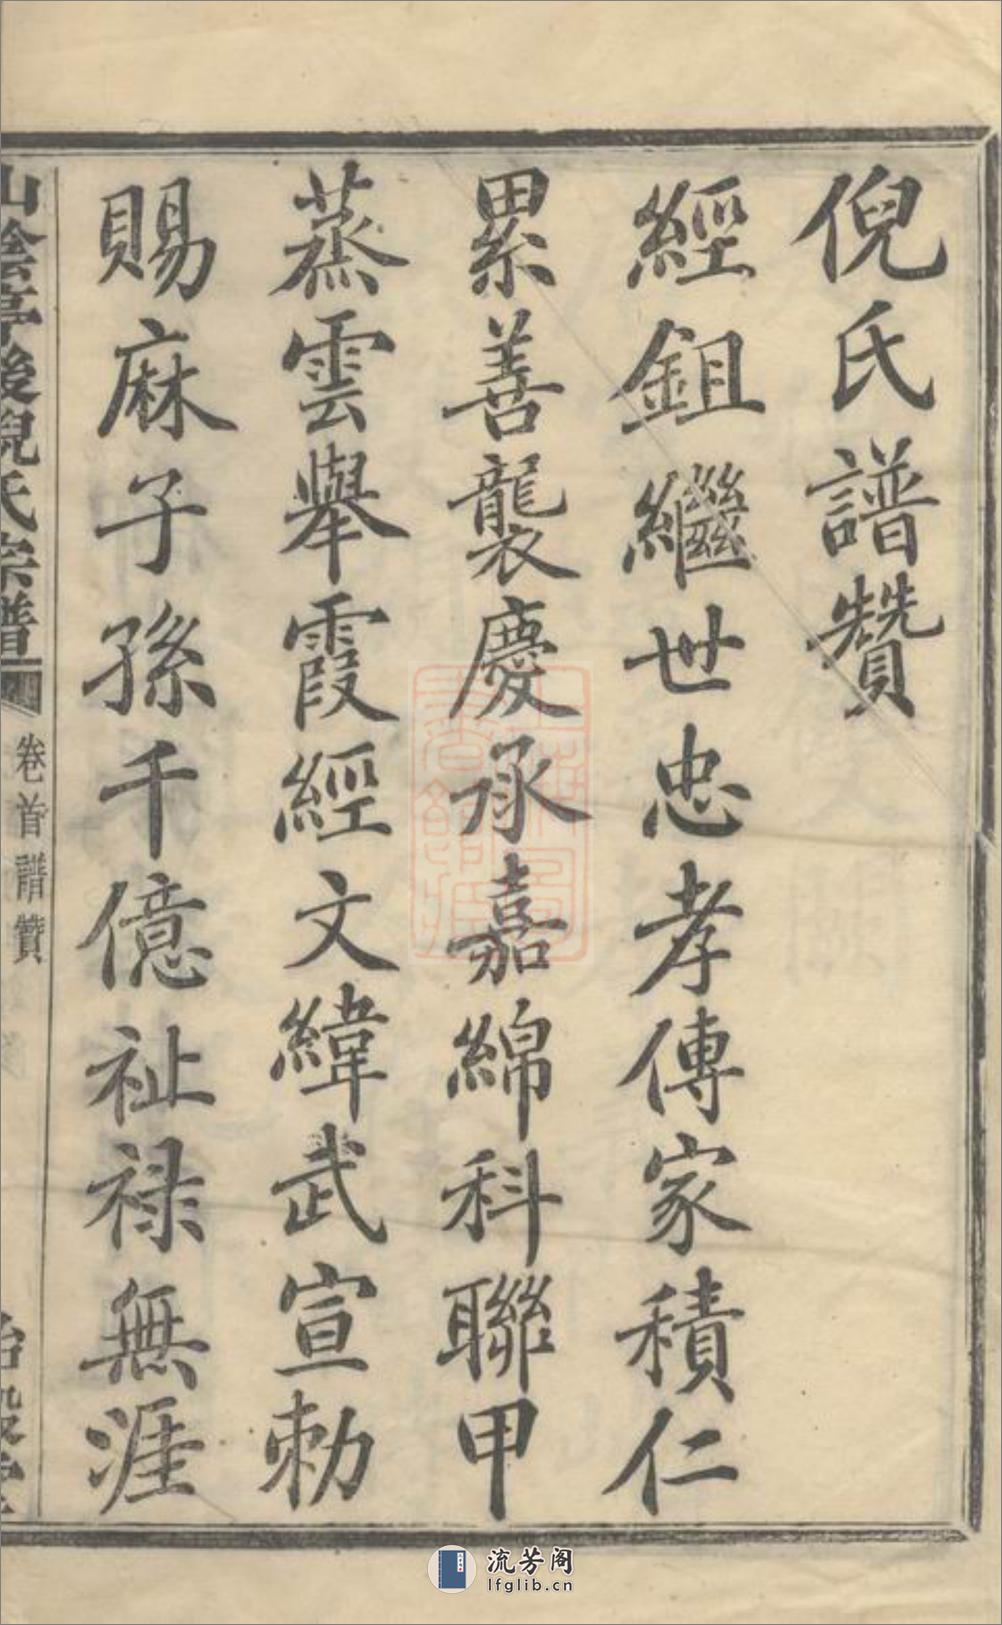 倪氏譜贊
經鉏繼世忠孝傳家積仁
累善襲慶承嘉綿科聯甲
蒸雲舉霞經文緯武宣勅
賜麻子孫千億祉禄無涯
山陰亭後倪氏宗譜
卷首譜贊
流芳阁
lfglib.cn